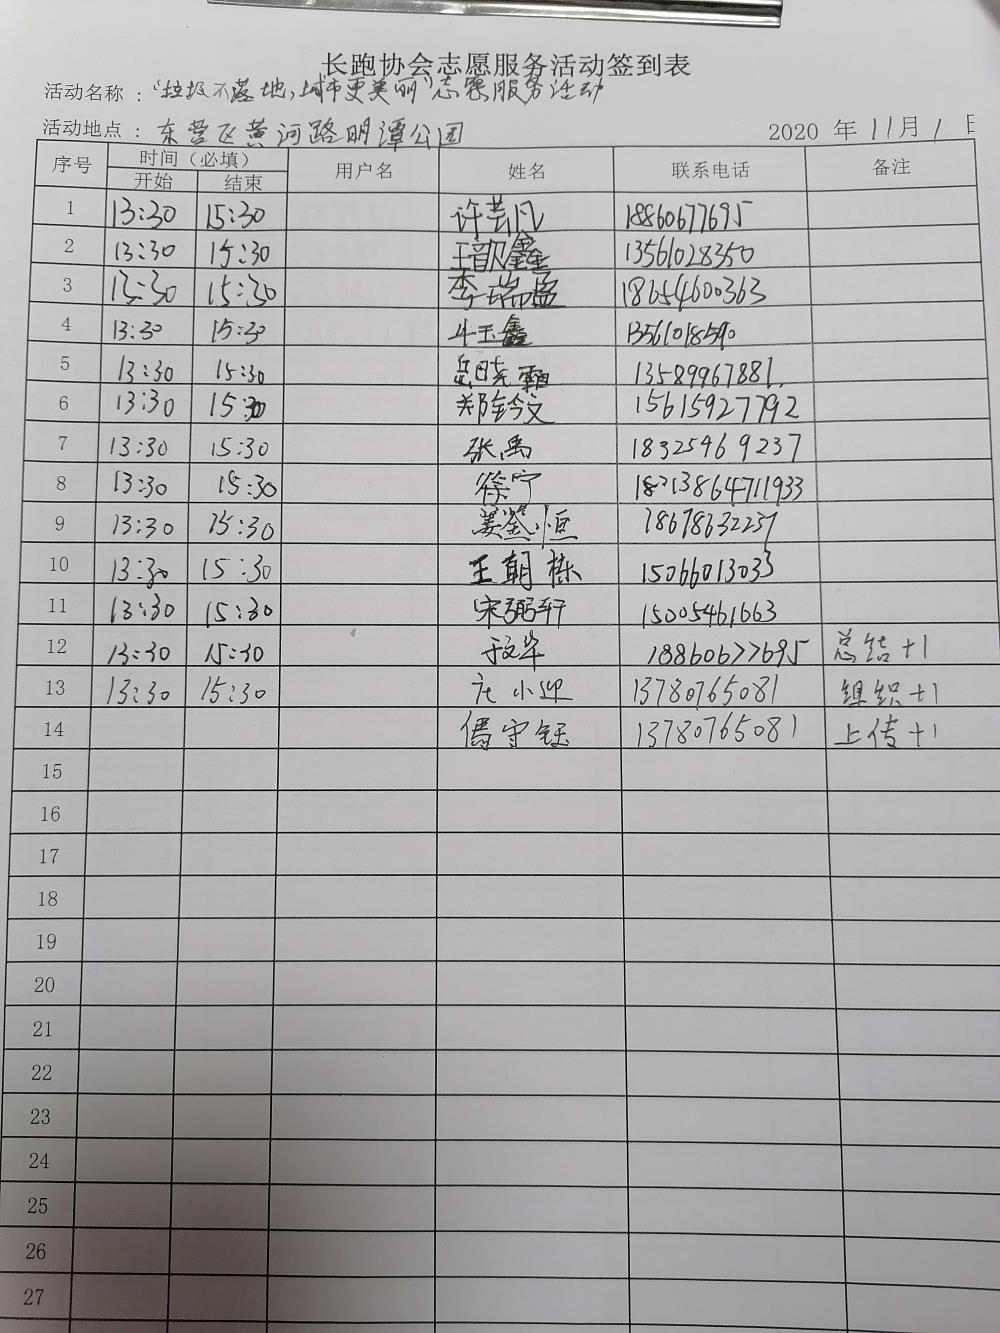 长跑协会志愿服务活动签到表
活动名称：“垃圾不落地，城市更美丽”志愿服务活动
活动地点：东营区黄河路明潭公园 2020 年 11月 1 日
序号 时间（必填） 用户名 姓名 联系电话 备注
开始 结束
1 13:30 15:30 许芸凡 18860677695
2 13:30 15:30 王歆鑫 13561028350
3 13:30 15:30 李瑞 18654600363
4 13:30 15:30 玉鑫 13561018590
5 13:30 15:30 岳晓霜 13589967881
6 13:30 15:30 郑铃文 15615927792
7 13:30 15:30 张禹 18325469237
8 13:30 15:30 徐宁
9 13:30 15:30 姜恒 18678632237
10 13:30 15:30 王朝栋 15066013033
11 13:30 15:30 宋弼轩 15005461663
12 13:30 15:30 于文华 18860677695 总结+1
13 13:30 15:30 庄小迎 13780765081 组织+1
14 守钰 13780765081 上传+1
15
16
17
18
19
20
21
22
23
24
25
26
27